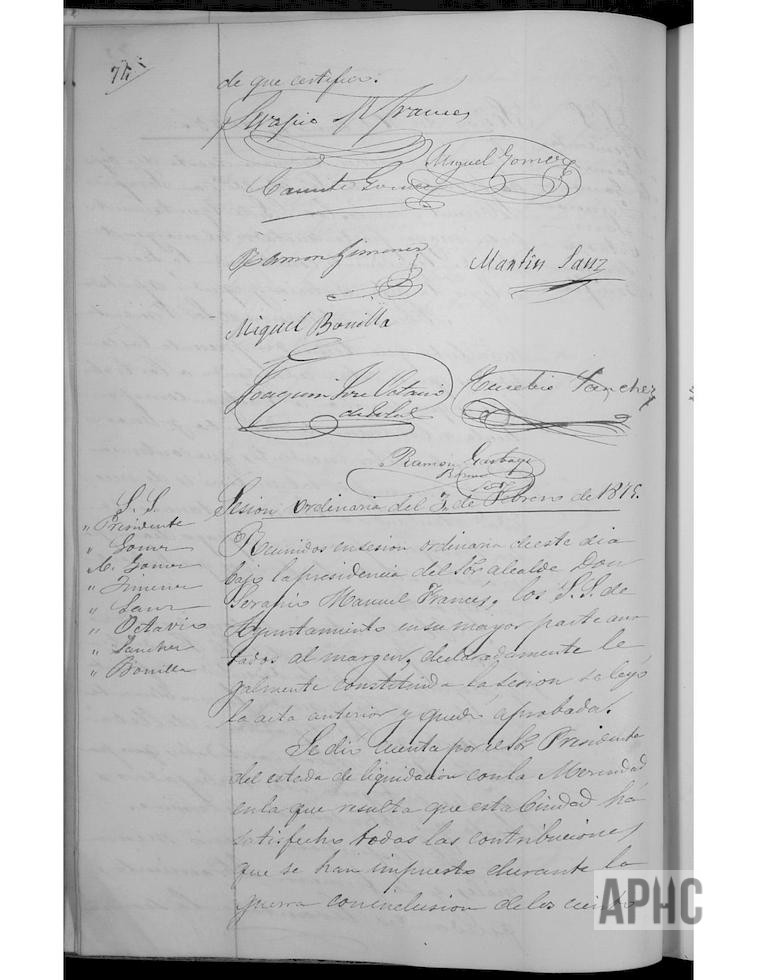 74
de que certifico.
Serapio M. Frances
Miguel Gomez
Camilo Gomez
Ramon Gimenez
Martin Sanz
Miguel Bonilla
Joaquin Jose Octavio
de Toledo
Eusebio Sanchez
Ramon Garbayo
Srio
S. S.
" Presidente
" Gomez
M. Gomez
" Jimenez
" Sanz
" Octavio
" Sancher
" Bonilla
Sesion Ordinaria del 7 de Febrero de 1875.
Reunidos en sesion ordinaria de este dia
bajo la presidencia del Sor. alcalde Don
Serapio Manuel Francés, los S.S. de
Ayuntamiento en su mayor parte ano
tados al margen, declaradamente le
galmente constituida la sesion se leyó
la acta anterior y quedó aprobada.
Se dió cuenta por el Sor Presidente
del estado de liquidacion con la Merindad
en la que resulta que esta Ciudad há
satisfecho todas las contribuciones
que se han impuesto durante la
guerra con inclusion de los ciento
APHC